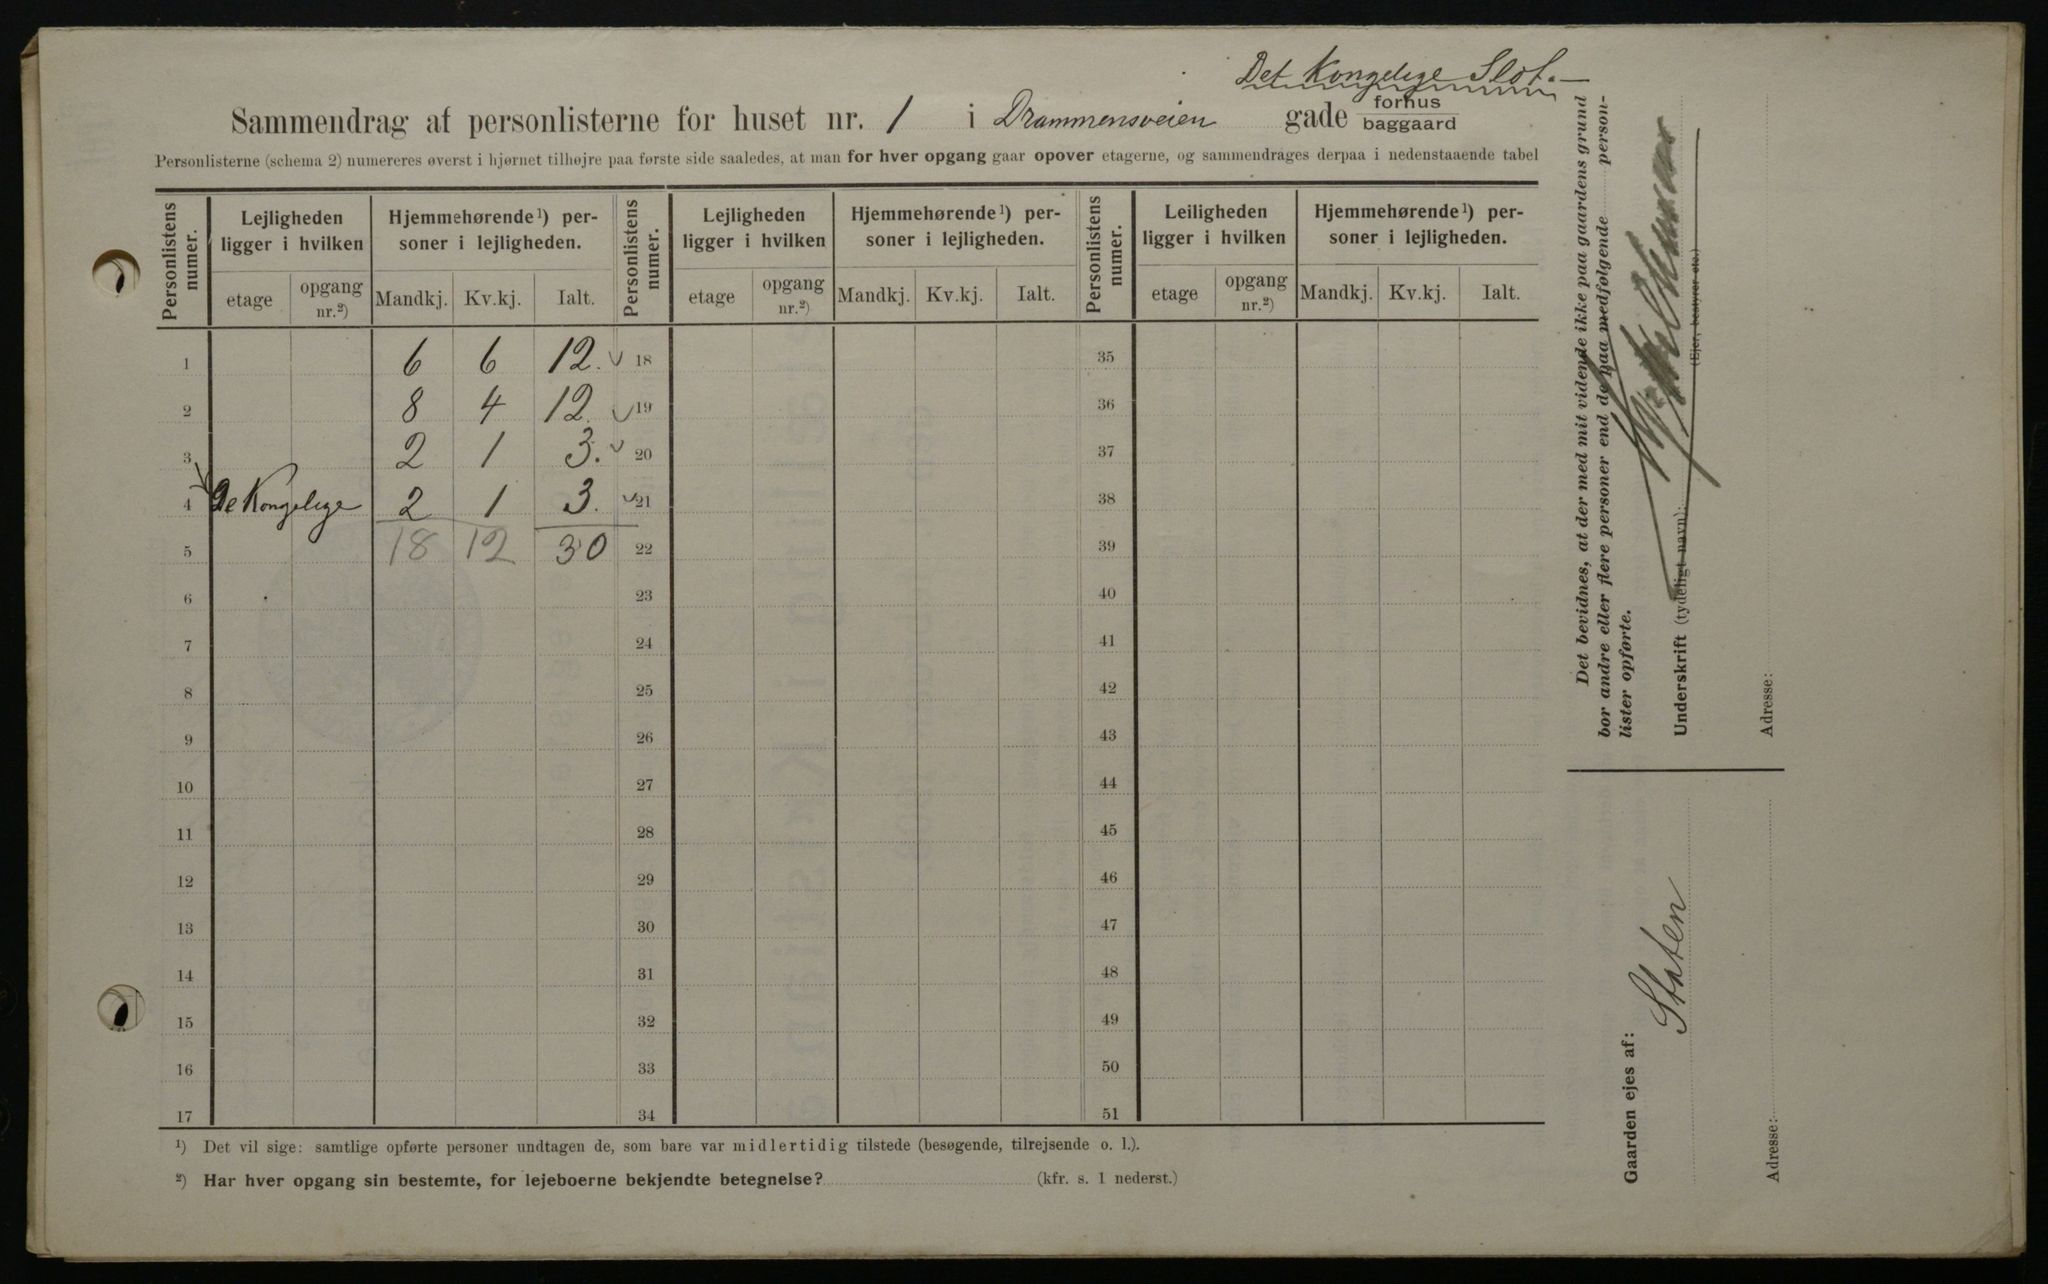 Det Kongelige Slot.
Sammendrag af personlisterne for huset nr. 1 i Drammensveien gade forhus baggaard
Personlisterne (schema 2) numereres øverst i hjørnet tilhøjre paa første side saaledes, at man for hver opgang gaar opover etagerne, og sammendrages derpaa i nedenstaaende tabel
Personlistens numer. Lejligheden ligger i hvilken Hjemmehørende¹) personer i lejligheden. Personlistens numer. Lejligheden ligger i hvilken Hjemmehørende¹) personer i lejligheden. Personlistens numer. Leiligheden ligger i hvilken Hjemmehørende¹) personer i lejligheden.
etage opgang nr.²) Mandkj. Kv.kj. Ialt. etage opgang nr.²) Mandkj. Kv.kj. Ialt. etage opgang nr.²) Mandkj. Kv.kj. Ialt.
1 6 6 12. 18 35
2 8 4 12. 19 36
3 2 1 3. 20 37
4 De Kongelige 2 1 3. 21 38
5 18 12 30 22 39
6 23 40
7 24 41
8 25 42
9 26 43
10 27 44
11 28 45
12 29 46
13 30 47
14 31 48
15 32 49
16 33 50
17 34 51
¹) Det vil sige: samtlige opførte personer undtagen de, som bare var midlertidig tilstede (besøgende, tilrejsende o. l.).
²) Har hver opgang sin bestemte, for lejeboerne bekjendte betegnelse? (kfr. s. 1 nederst.)
Det bevidnes, at der med mit vidende ikke paa gaardens grund
bor andre eller flere personer end de paa medfølgende person-
lister opførte.
Underskrift (tydeligt navn):
(Ejer, bestyrer etc.)
Adresse:
Gaarden ejes af: Staten
Adresse: